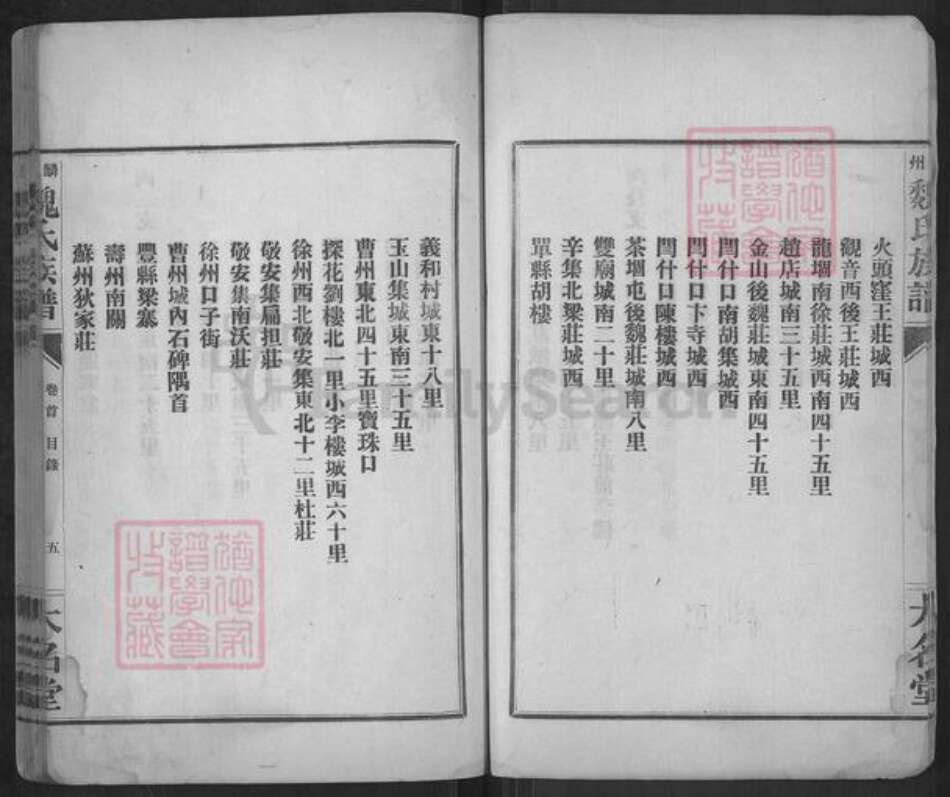 州
魏氏族譜
大名堂
火頭窪王莊城西
觀音西後王莊城西
龍堌南徐莊城西南四十五里
趙店城南三十五里
金山後魏莊城東南四十五里
閆什口南胡集城西
閆什口下寺城西
閆什口陳樓城西
茶堌屯後魏莊城南八里
雙廟城南二十里
辛集北梁莊城西
單縣胡樓
義和村城東十八里
玉山集城東南三十五里
曹州東北四十五里寶珠口
探花劉樓北一里小李樓城西六十里
徐州西北敬安集東北十二里杜莊
敬安集扁担莊
敬安集南沃莊
徐州口子街
曹州城內石碑隅首
豐縣梁寨
壽州南關
蘇州狄家莊
麟
魏氏族譜
卷首 目錄
五
大名堂
猶他家譜學會收藏
猶他家譜學會收藏
FamilySearch